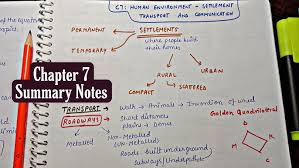 C7: HUMAN ENVIRONMENT - SETTLEMENT
TRANSPORT AND COMMUNICATION
SETTLEMENTS
PERMANENT
TEMPORARY
where people build
their homes
RURAL
URBAN
COMPACT
SCATTERED
Chapter 7
Summary Notes
TRANSPORT → Walk → Animals → Invention of wheel
ROADWAYS
Short distances
plains - Dense
Golden Quadrilateral
Metalled
Non-Metalled
Roads built underground
Subways/Underpaths